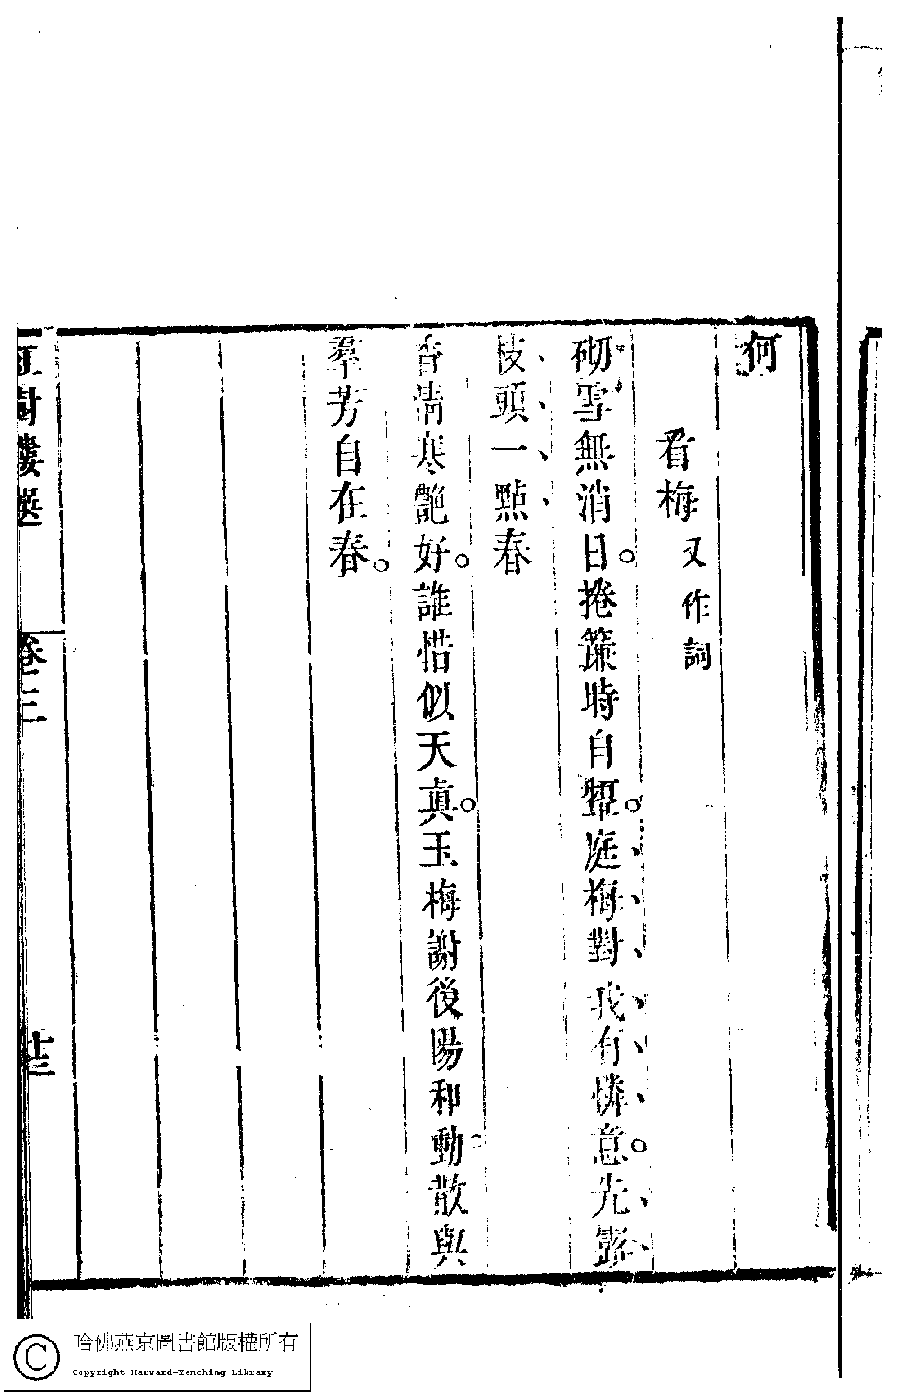 何
看梅又作詞
砌雪無消日捲簾時自顰庭梅對我有憐意先露
枝頭一點春
香清寒艷好誰惜似天真玉梅謝後陽和動散與
羣芳自在春
紅樹樓選 卷三 廿三
哈佛燕京圖書館版權所有
Copyright Harvard-Yenching Library